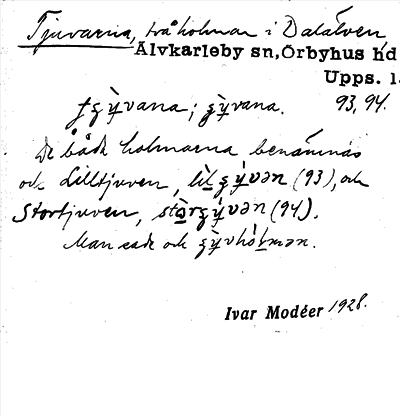 Tjuvarna, två holmar i Dalälven
Älvkarleby sn, Örbyhus hd
Upps. l.
93, 94.
De båda holmarna benämnas
och Lilltjuven, (93), och
Stortjuven, (94).
Man sade och
Ivar Modéer 1928.